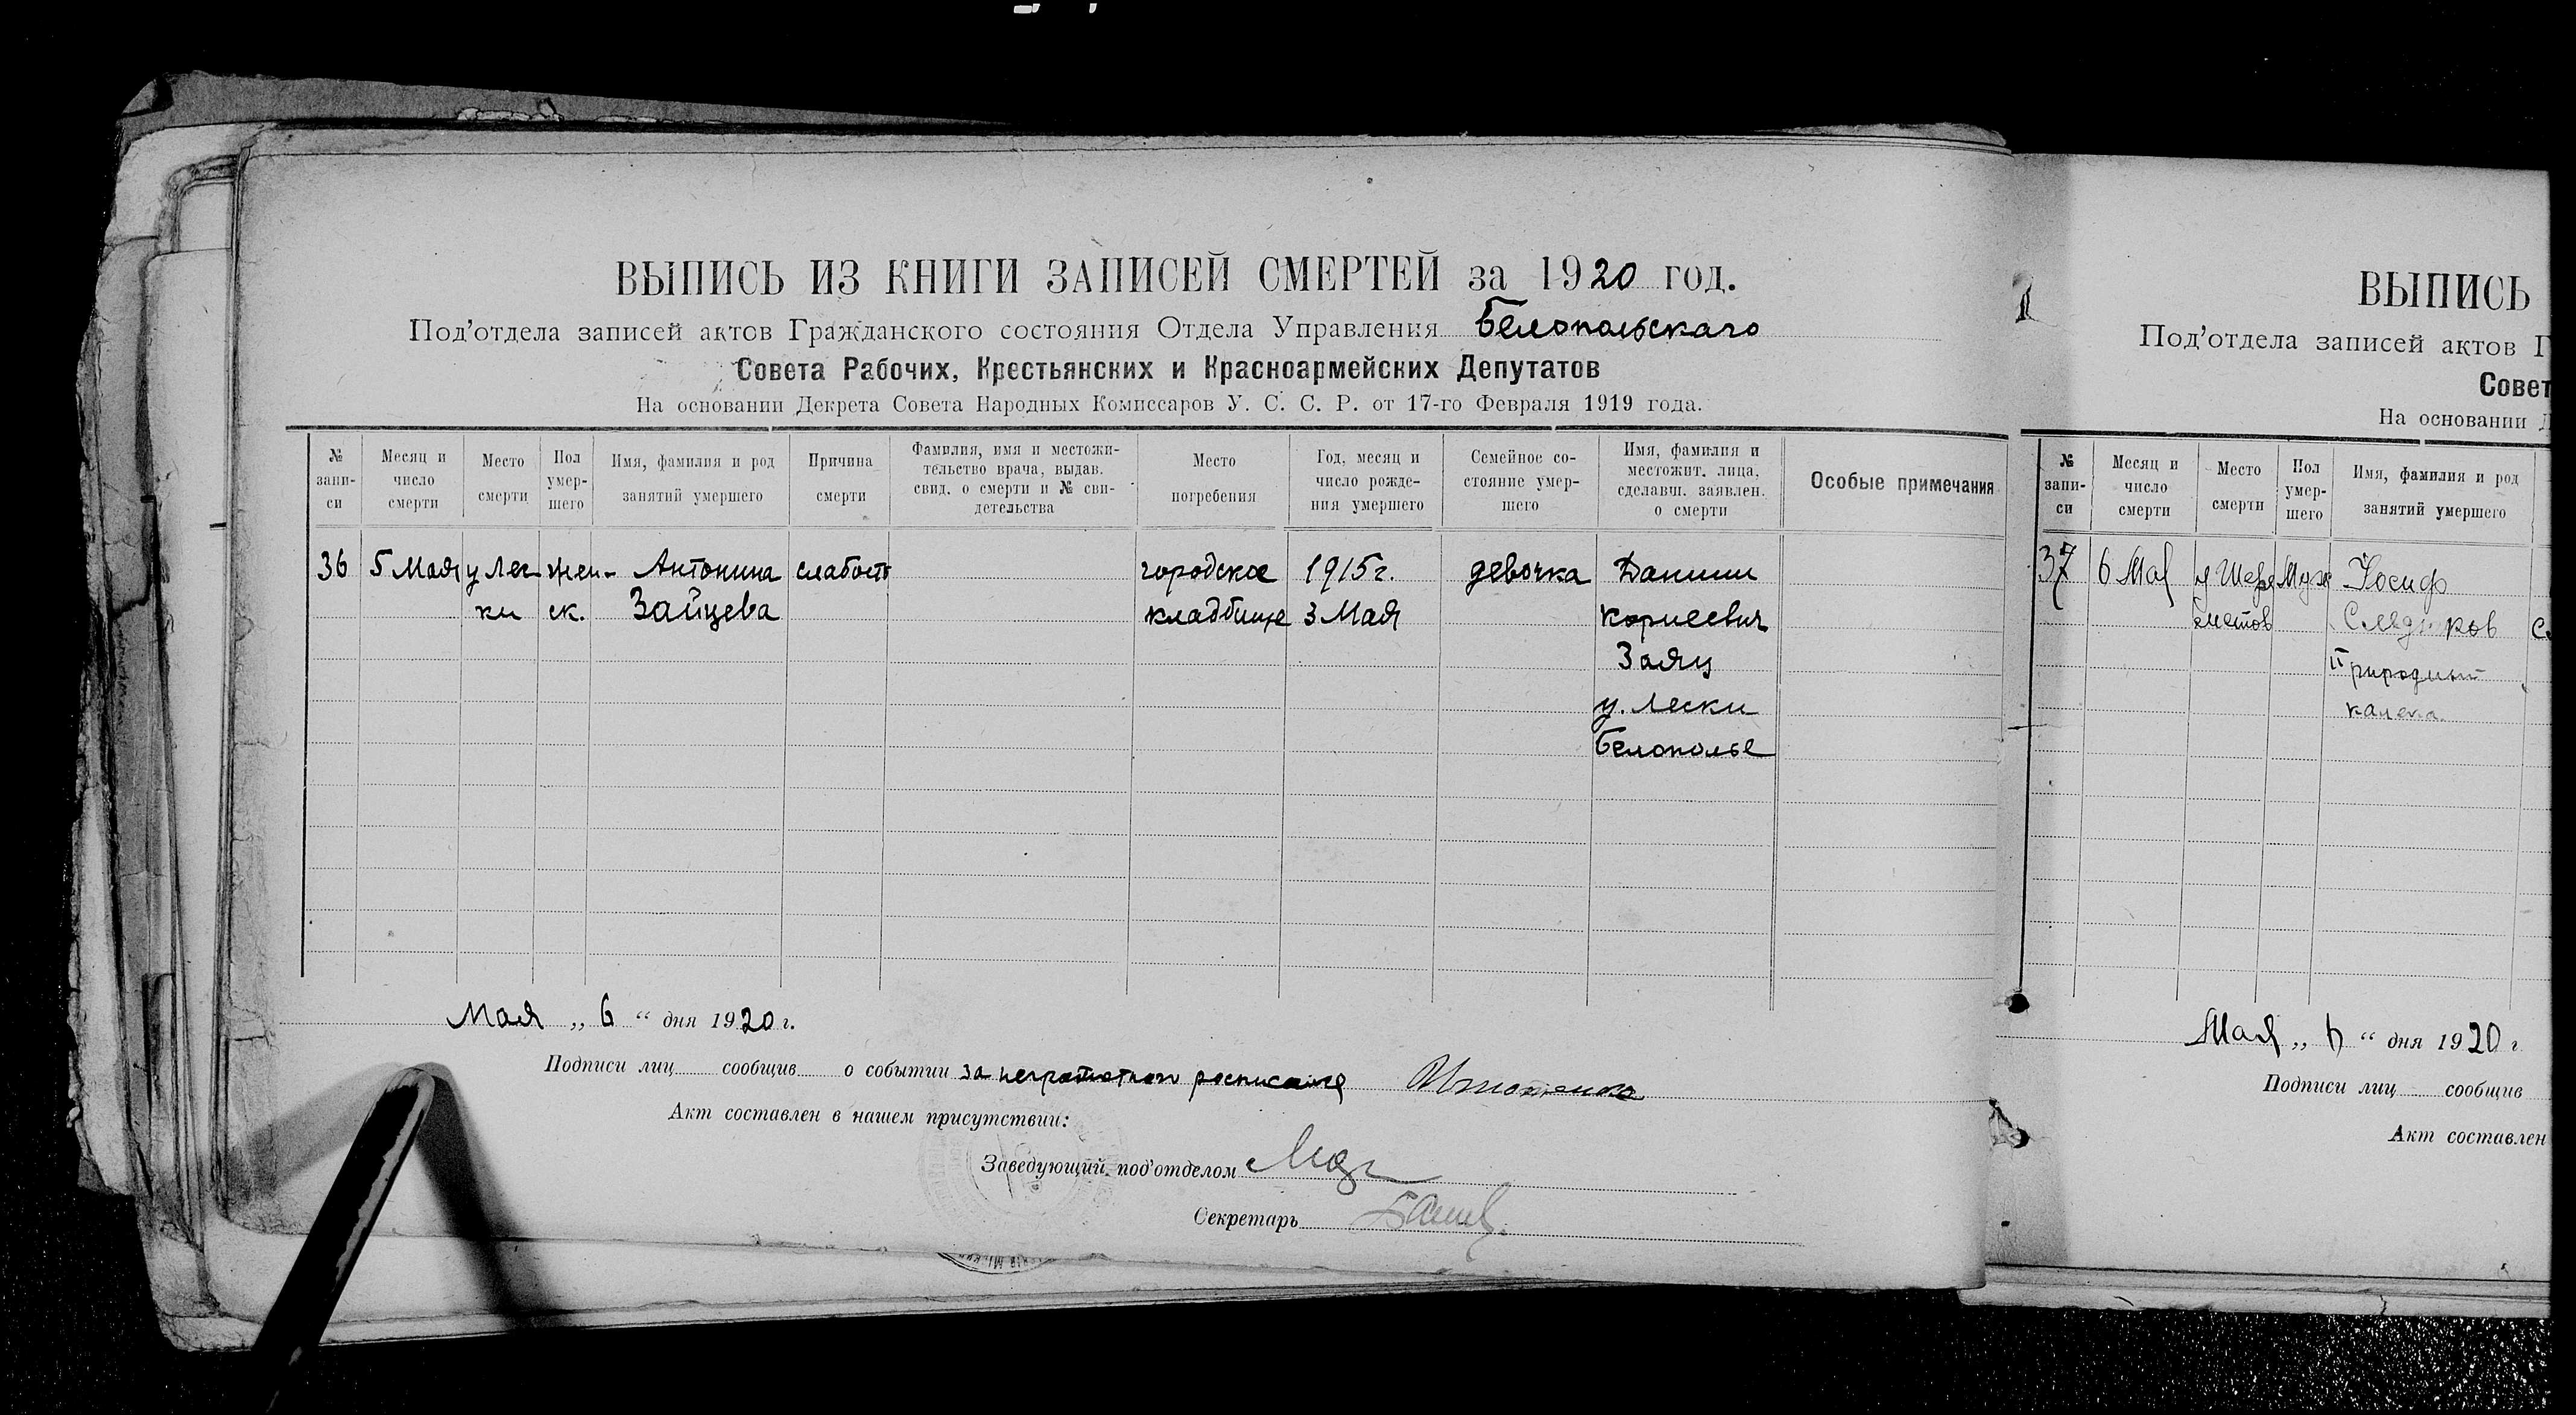 ВЫПИСЬ ИЗ КНИГИ ЗАПИСЕЙ СМЕРТЕЙ за 1920 год.
Под'отдела записей актов Гражданского состояния Отдела Управления Белопольскаго
Совета Рабочих, Крестьянских и Красноармейских Депутатов
На основании Декрета Совета Народных Комиссаров У. С. С. Р. от 17-го Февраля 1919 года.
№ запи-си
Месяц и число смерти
Место смерти
Пол умер-шего
Имя, фамилия и род занятий умершего
Причина смерти
Фамилия, имя и местожи-тельство врача, выдав. свид. о смерти и № сви-детельства
Место погребения
Год, месяц и число рожде-ния умершего
Семейное со-стояние умер-шего
Имя, фамилия и местожит. лица, сделавш. заявлен. о смерти
Особые примечания
36 5 Мая у Лес- жен- Антонина слабость городское 1915 г. девочка Даниил
ки ск. Зайцева кладбище 3 Мая Корнеевич
Заяц
у. Лески
Белополье
Мая „ 6 “ дня 1920 г.
Подписи лиц сообщив о событии за неграмотного
Акт составлен в нашем присутствии:
Заведующий под'отделом
Секретарь
ВЫПИСЬ
Под'отдела записей актов Г
Совет
На основании Д
№ запи-си
Месяц и число смерти
Место смерти
Пол умер-шего
Имя, фамилия и род занятий умершего
37 6 Мая Муж Иосиф
калека
Мая „ 6 “ дня 1920 г.
Подписи лиц сообщив
Акт составлен